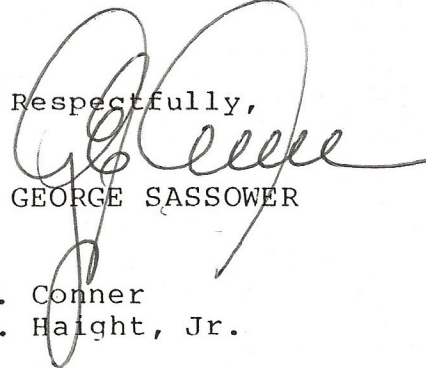 Respectfully,
GEORGE SASSOWER
. Conner
. Haight, Jr.